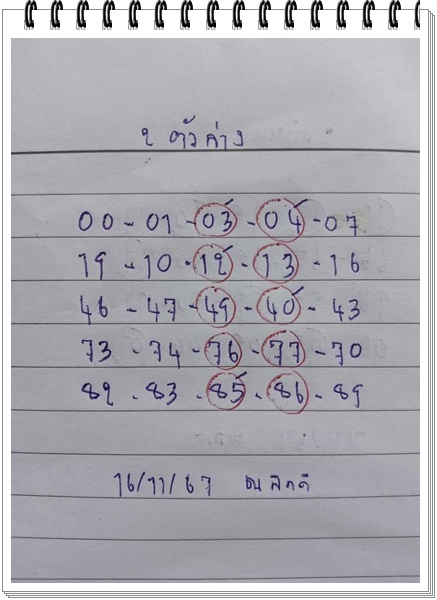 2 ตัวล่าง
00-01-03-04-07
19-10-12-13-16
46-47-49-40-43
73-74-76-77-70
82-83-85-86-89
16/11/67